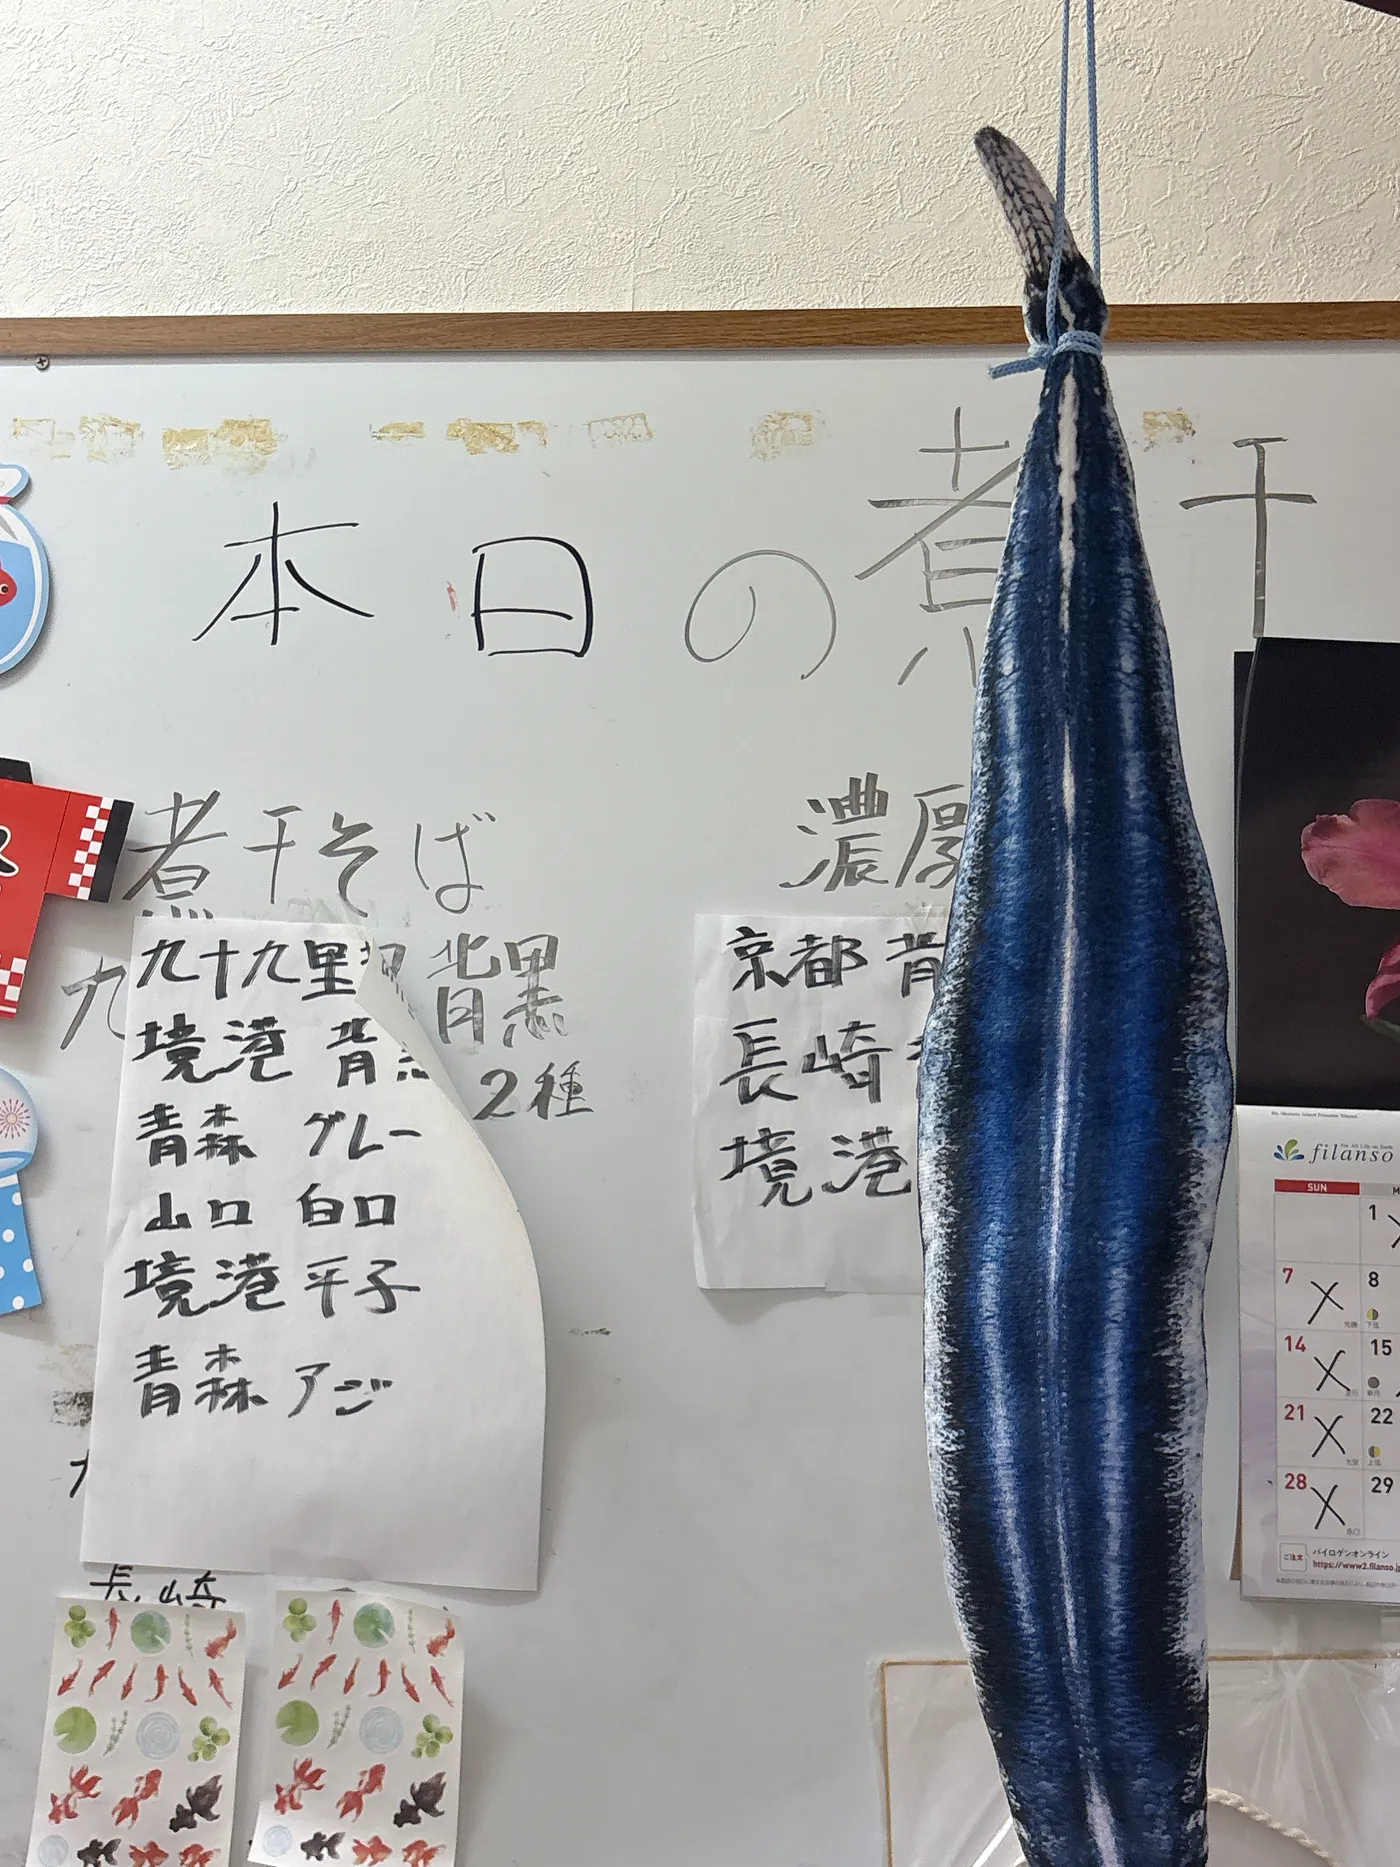 本日の煮干
煮干そば
九十九里
背黒
境港 背
2種
青森 グレー
山口 白口
境港 平子
青森 アジ
長崎
濃厚
京都 背
長崎
境港
filanso
SUN
1
7 8
14 15
21 22
28 29
ご注文
パイロゲンオンライン
https://www2.filanso.j